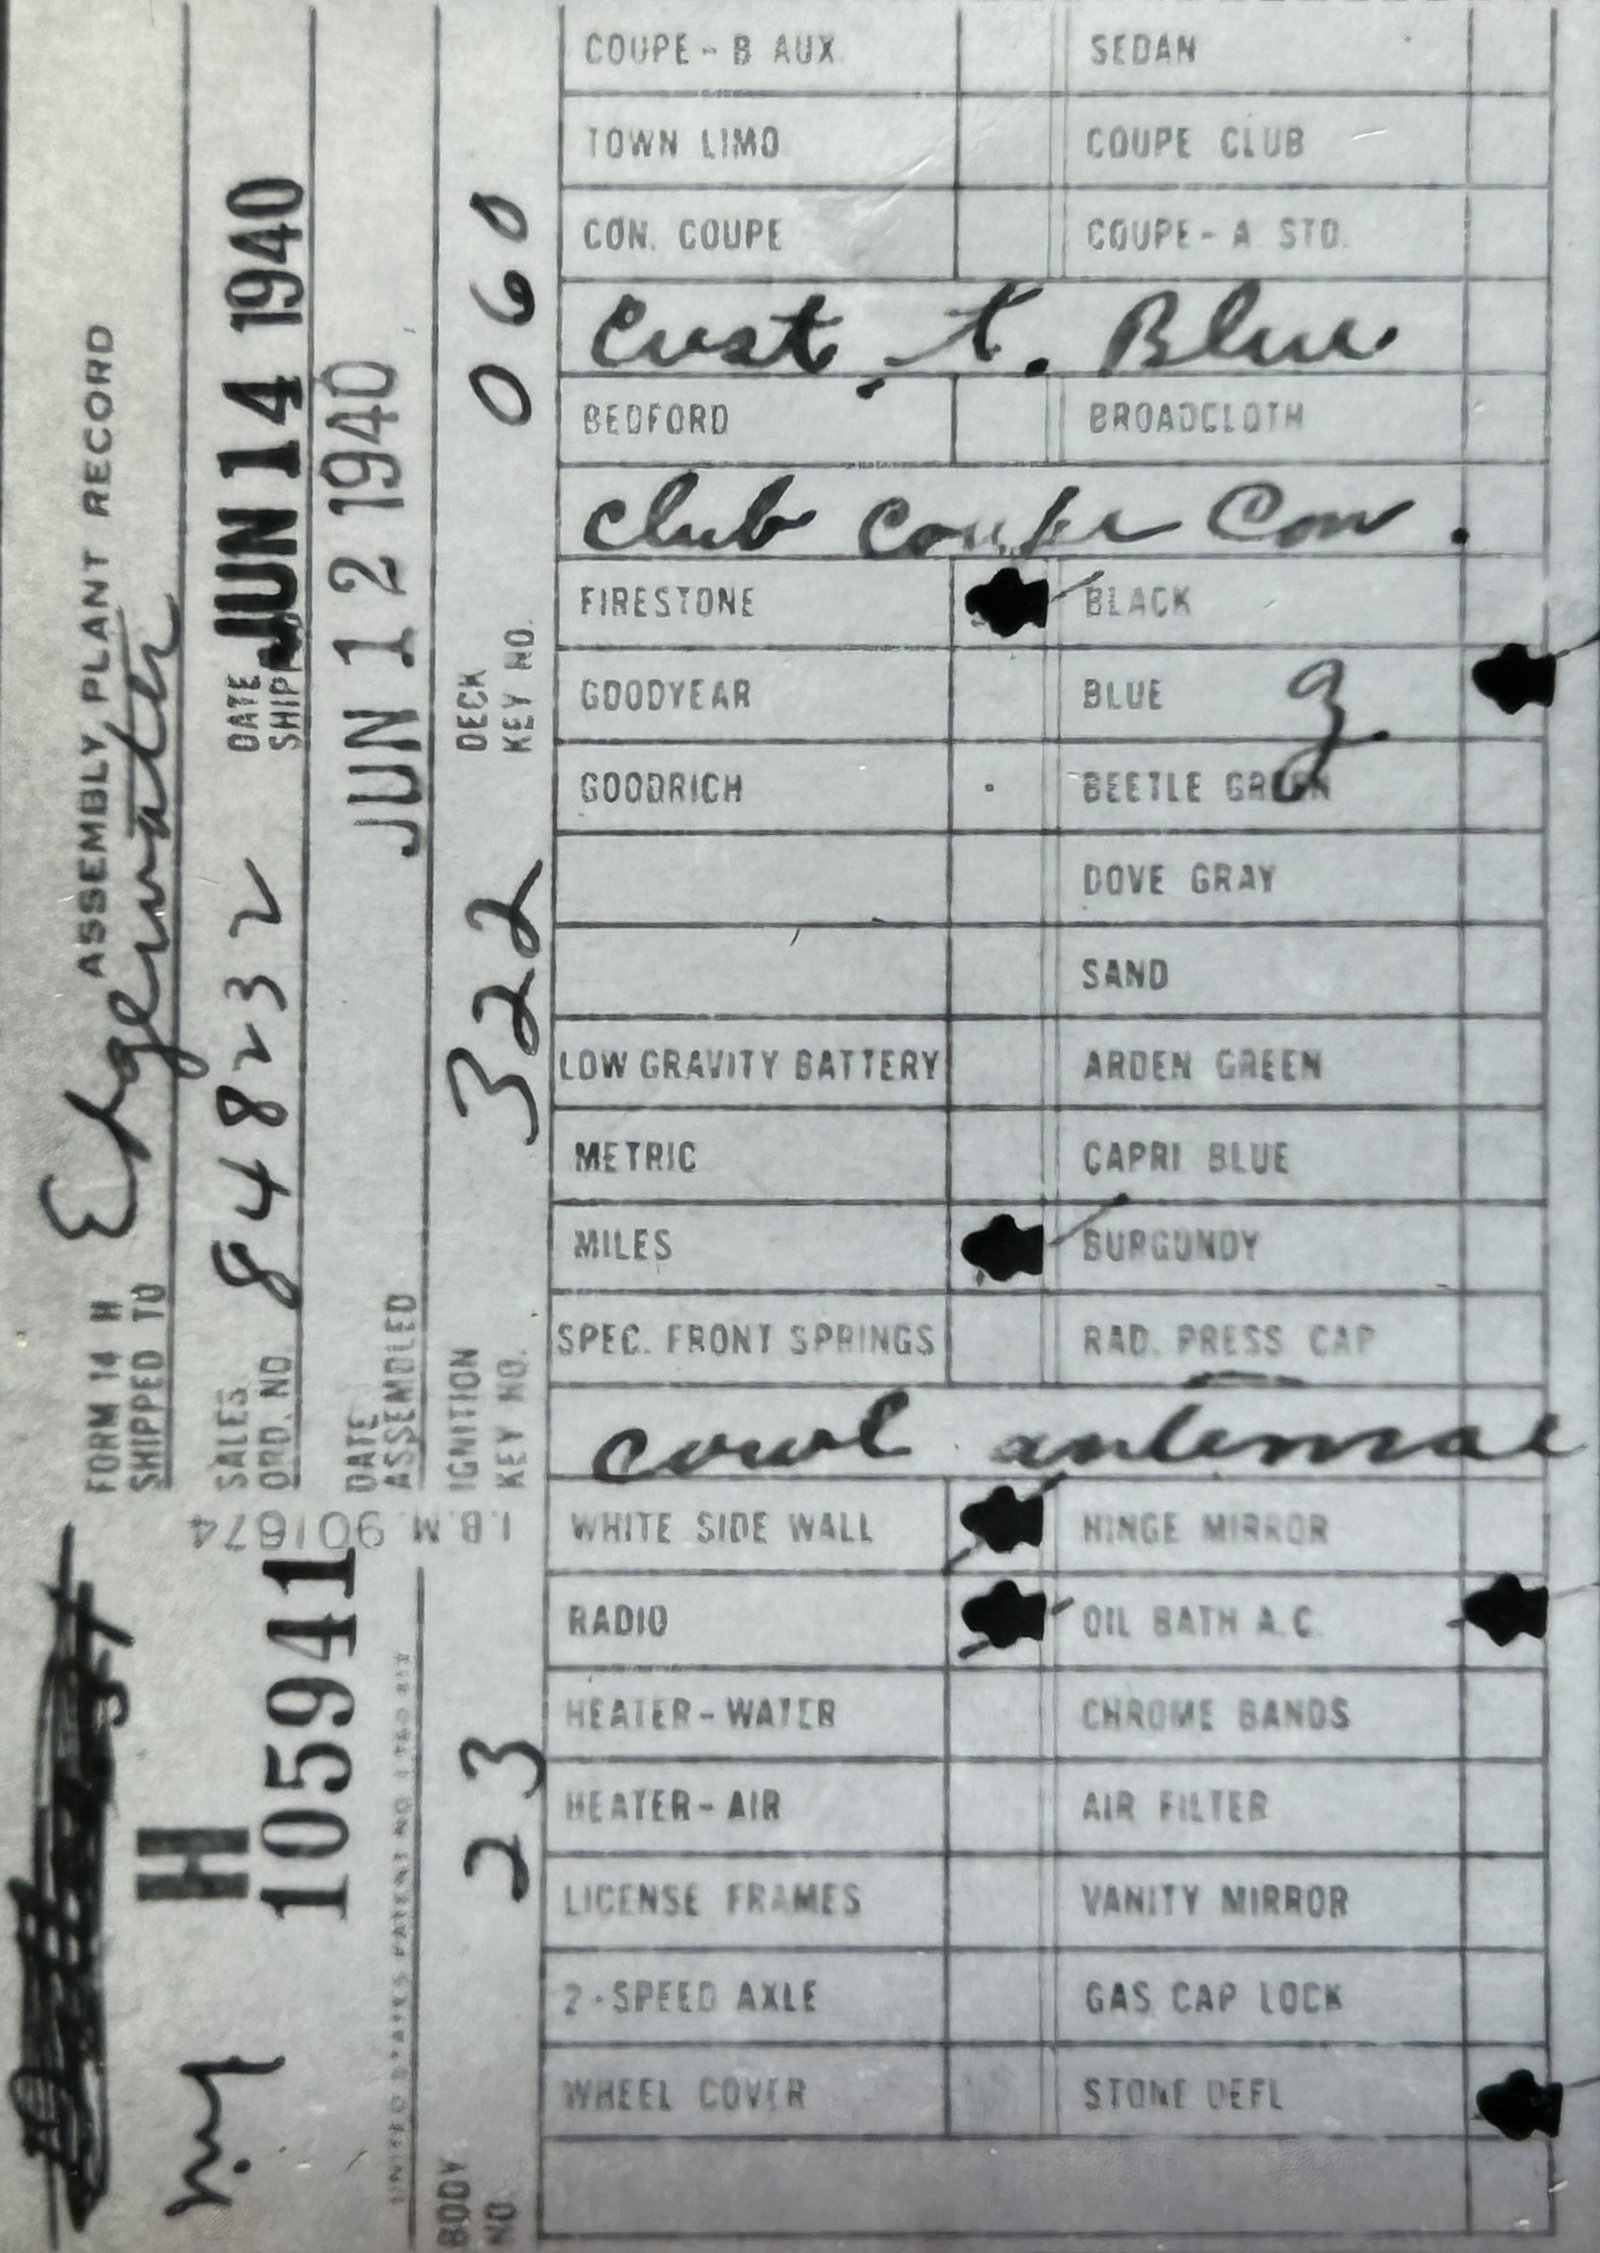 FORM 14 H ASSEMBLY PLANT RECORD
SHIPPED TO Edgewater
SALES ORD. NO. 848232 DATE SHIPP JUN 14 1940
DATE ASSEMBLED JUN 12 1940
IGNITION KEY NO. 322 DECK KEY NO. 060
I.B.M. 901674
H
105941
n.y
UNITED STATES PATENT NO
BODY NO. 23
COUPE - B AUX. SEDAN
TOWN LIMO COUPE CLUB
CON. COUPE COUPE - A STD.
Cust. t. Blue
BEDFORD BROADCLOTH
Club Coupe Con.
FIRESTONE BLACK
GOODYEAR BLUE
GOODRICH BEETLE GREEN
DOVE GRAY
SAND
LOW GRAVITY BATTERY ARDEN GREEN
METRIC CAPRI BLUE
MILES BURGUNDY
SPEC. FRONT SPRINGS RAD. PRESS CAP
cowl antennae
WHITE SIDE WALL HINGE MIRROR
RADIO OIL BATH A.C.
HEATER - WATER CHROME BANDS
HEATER - AIR AIR FILTER
LICENSE FRAMES VANITY MIRROR
2 - SPEED AXLE GAS CAP LOCK
WHEEL COVER STONE DEFL